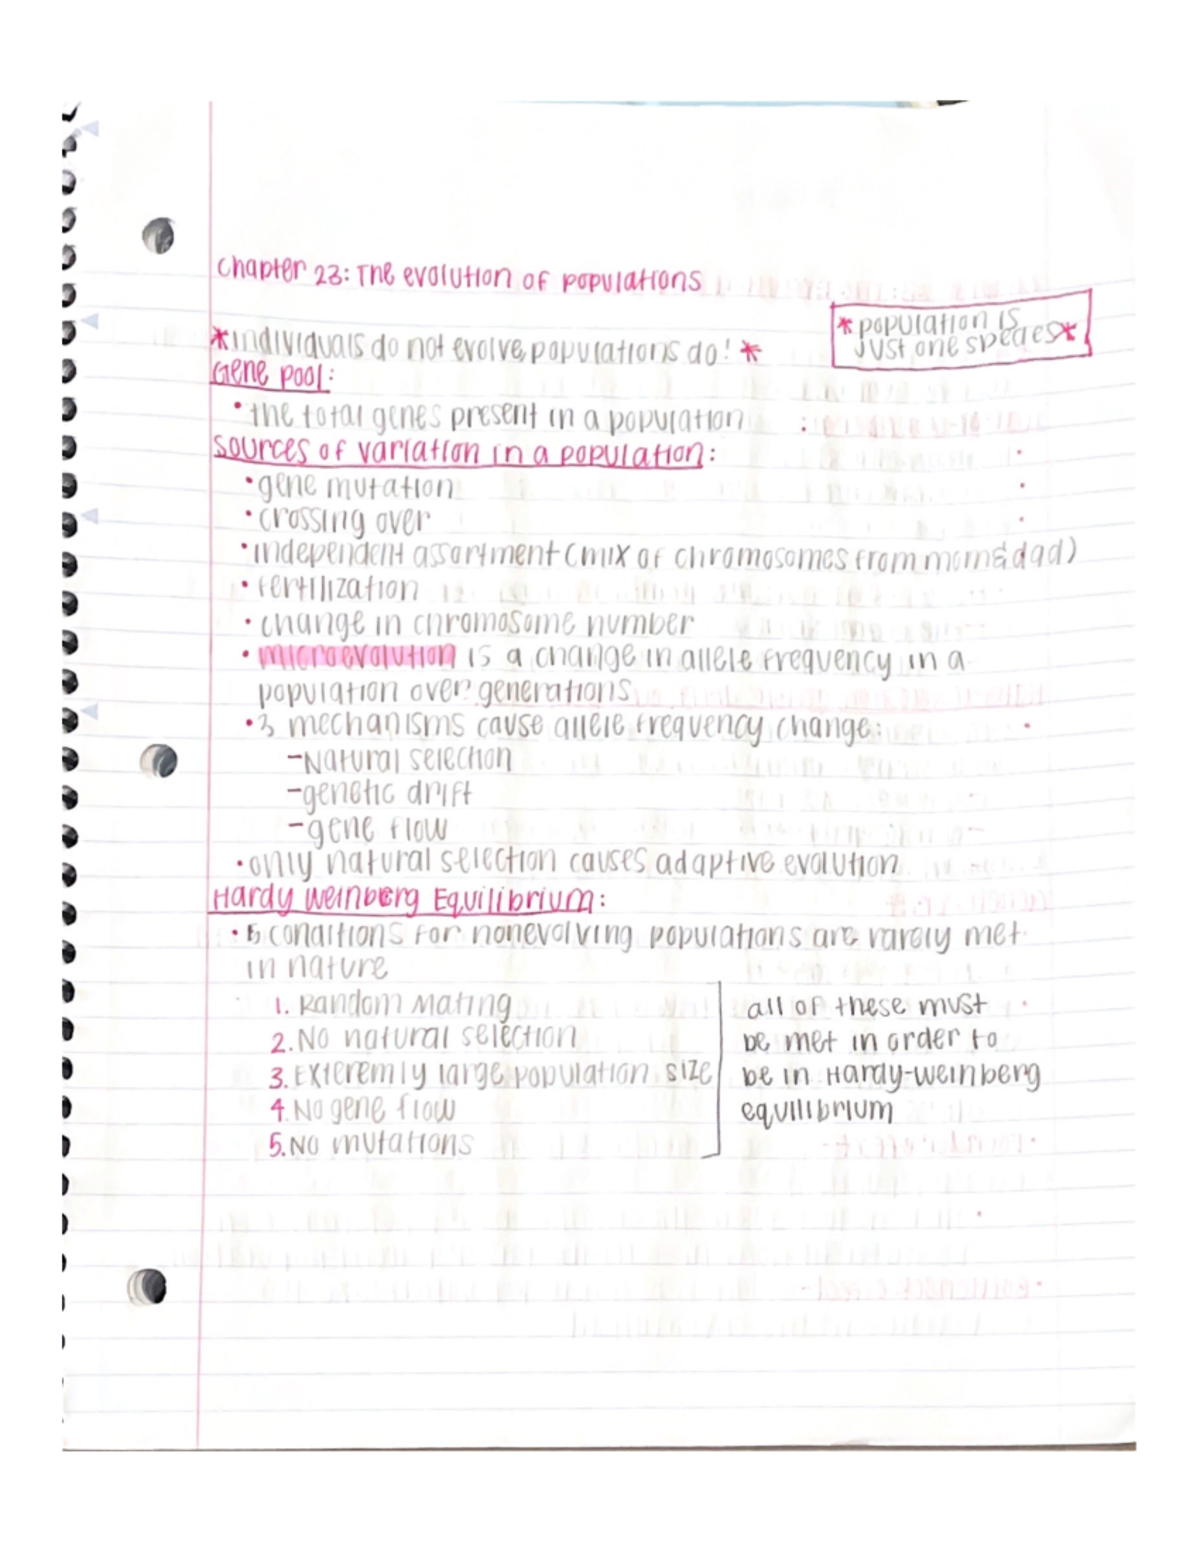 Chapter 23: The evolution of populations
*population is
just one species*
*individuals do not evolve, populations do! *
Gene Pool:
•the total genes present in a population
Sources of variation in a population:
•gene mutation
•crossing over
•independent assortment (mix of chromosomes from mom & dad)
•fertilization
•change in chromosome number
•microevolution is a change in allele frequency in a
population over generations
•3 mechanisms cause allele frequency change:
-Natural selection
-genetic drift
-gene flow
•only natural selection causes adaptive evolution
Hardy Weinberg Equilibrium:
•5 conditions for nonevolving populations are rarely met
in nature
1. Random Mating
2. No natural selection
3. Exteremly large population size
4. No gene flow
5. No mutations
all of these must
be met in order to
be in Hardy-Weinberg
equilibrium